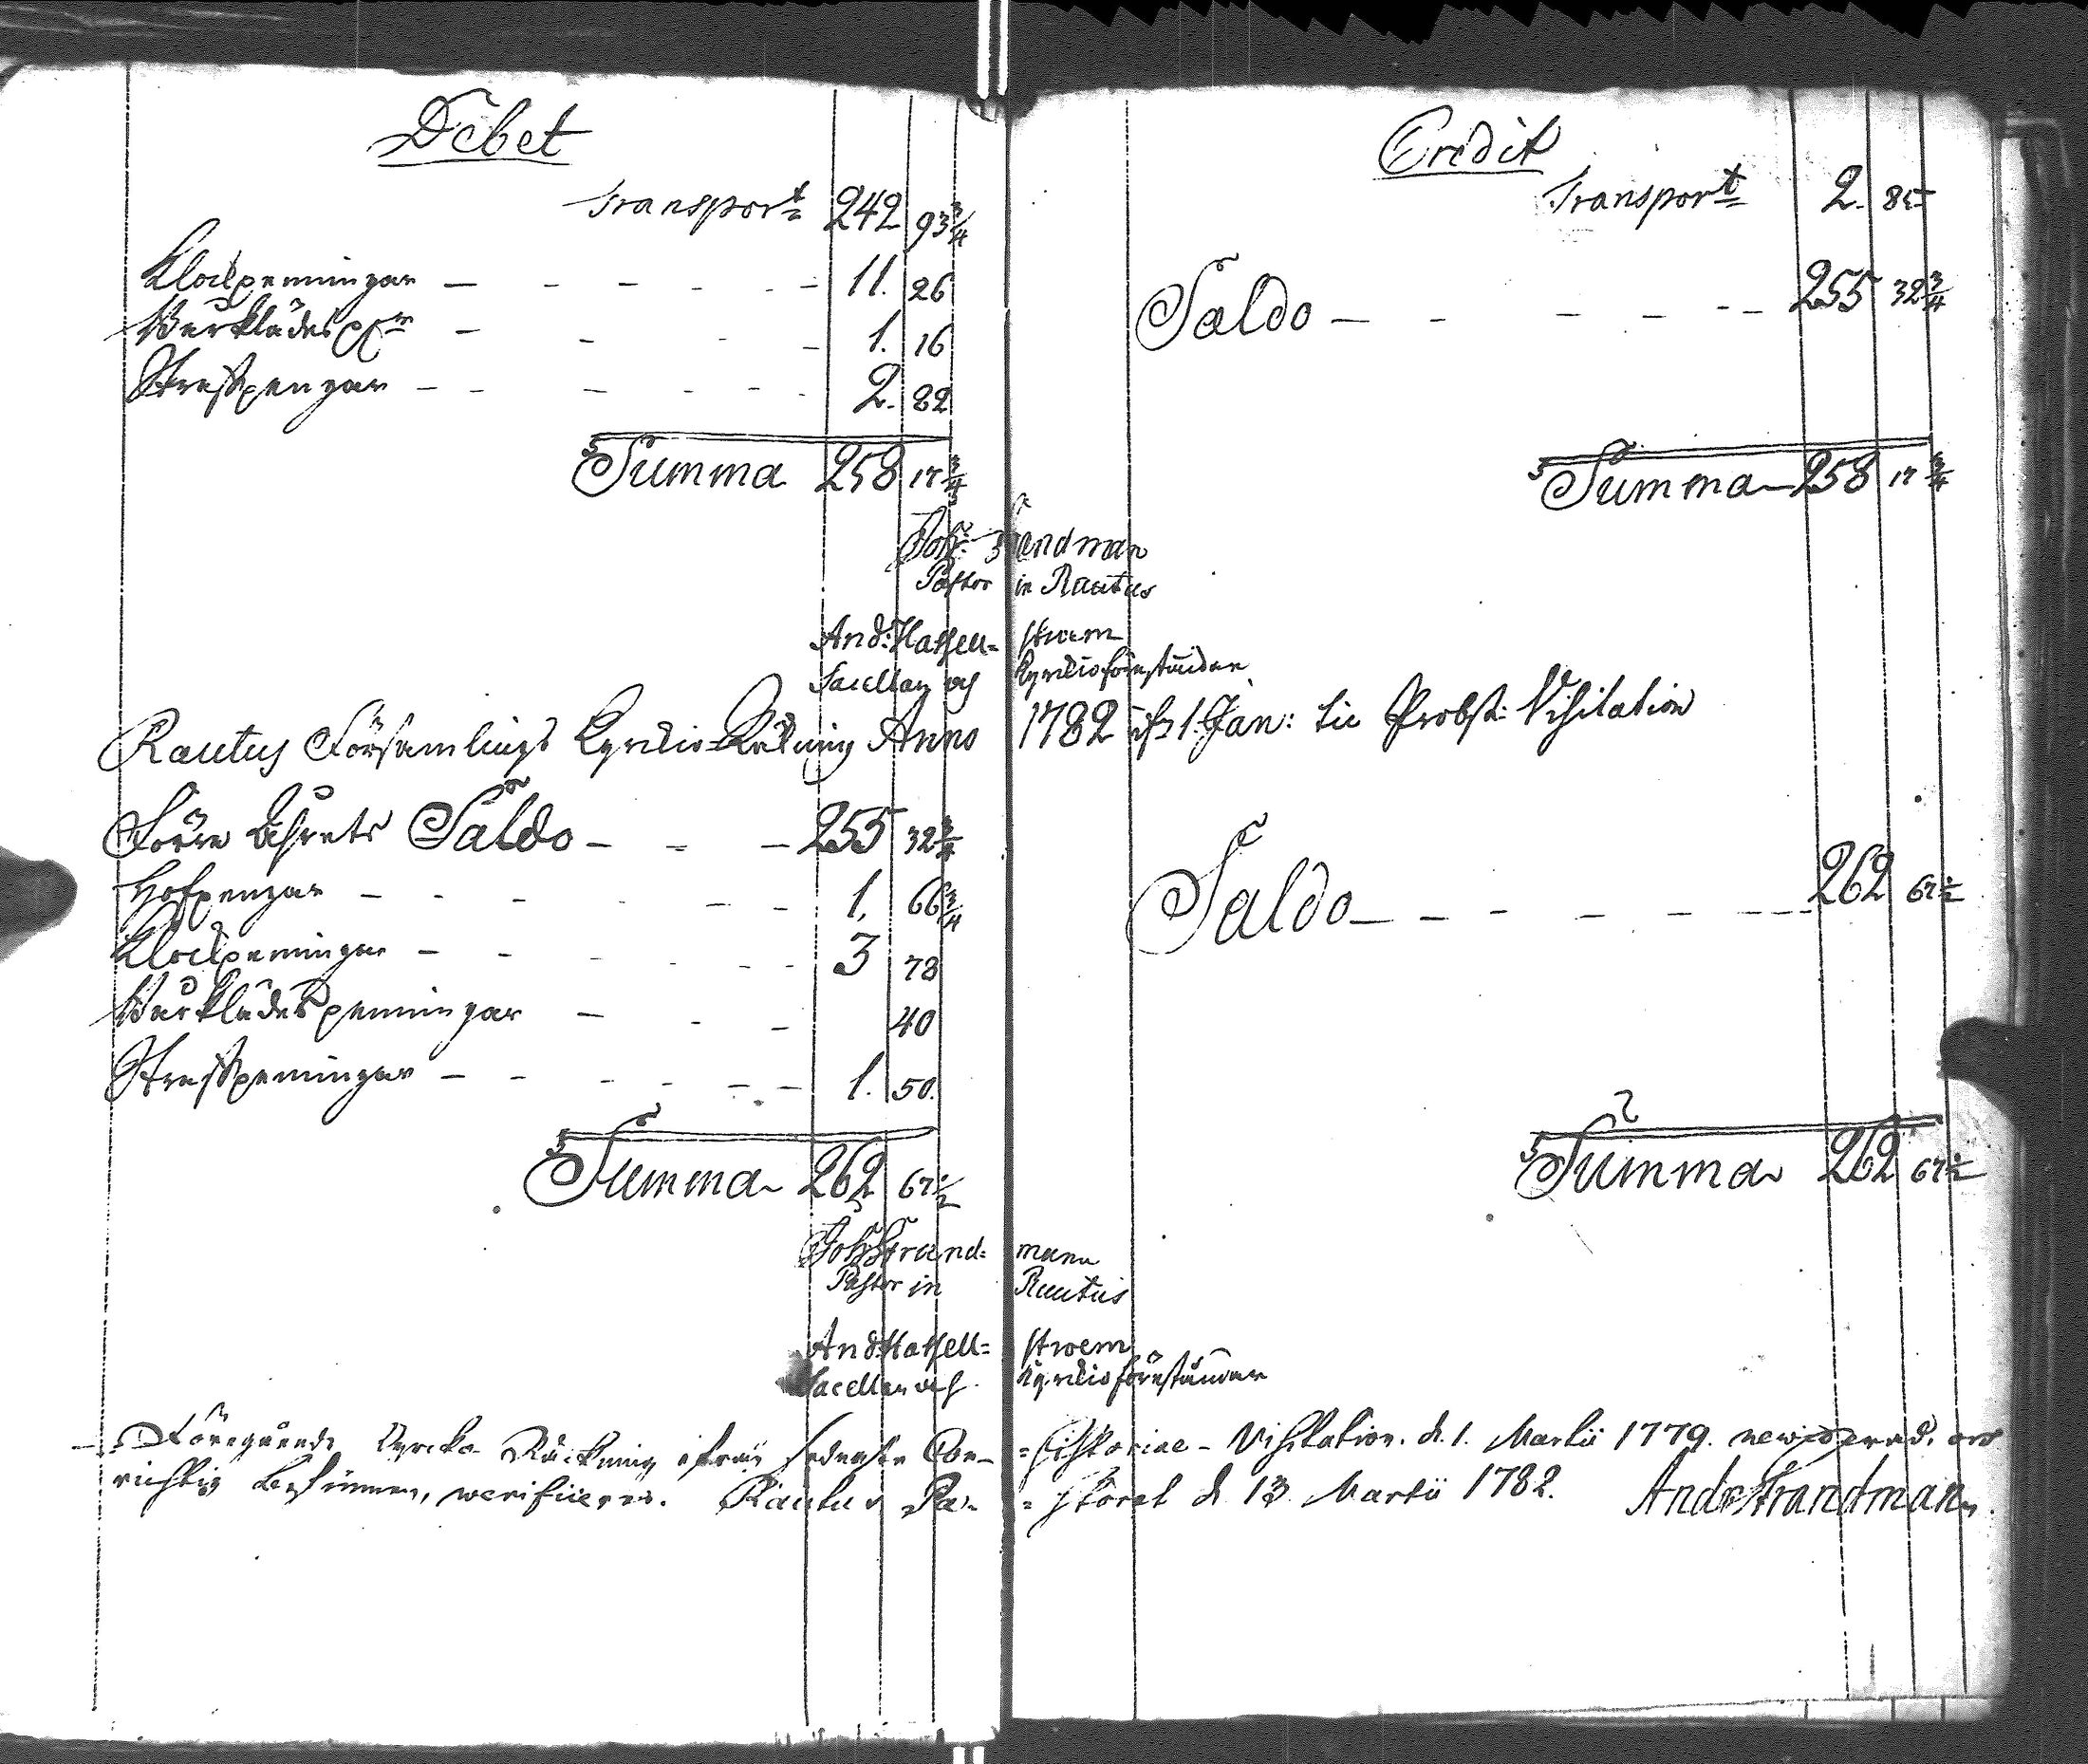 Debet
Transport 242 93 3/4
Klockpenningar — 11. 26
Bårklädes — 1. 16
Straffpengar — 2. 82
Summa 258 17 3/4
Credit
Transport 2. 85
Saldo — 255 32 3/4
Summa 258 17 3/4
Joh: Strandman
Pastor in Rautus
And: Hassell=stroem
Sacellan och Kyrckioföreståndar
Rautus Församlings Kyrckio=Räkning Anno 1782 ifr. 1. Jan: till Probst: Visitation
Förra Åhrets Saldo — 255 32 3/4
Hofpengar — 1. 66 3/4
Klockpenningar — 3 78
Bårklädespenningar — 40
Straffpenningar — 1. 50.
Summa 262 67 1/2
Saldo — 262 67 1/2
Summa 262 67 1/2
Joh Strand=mann
Pastor in Rautus
And: Hassell=stroem
Sacellan och Kyrckioföreståndar
Föregående Kyrcko Räckning ifrån sednaste Con=sistoriae-Visitation. d. 1. Martii 1779. och
richtig befunnen, verificeras. Rautus Pa=storet d 13 Martii 1782. And Strandmann.